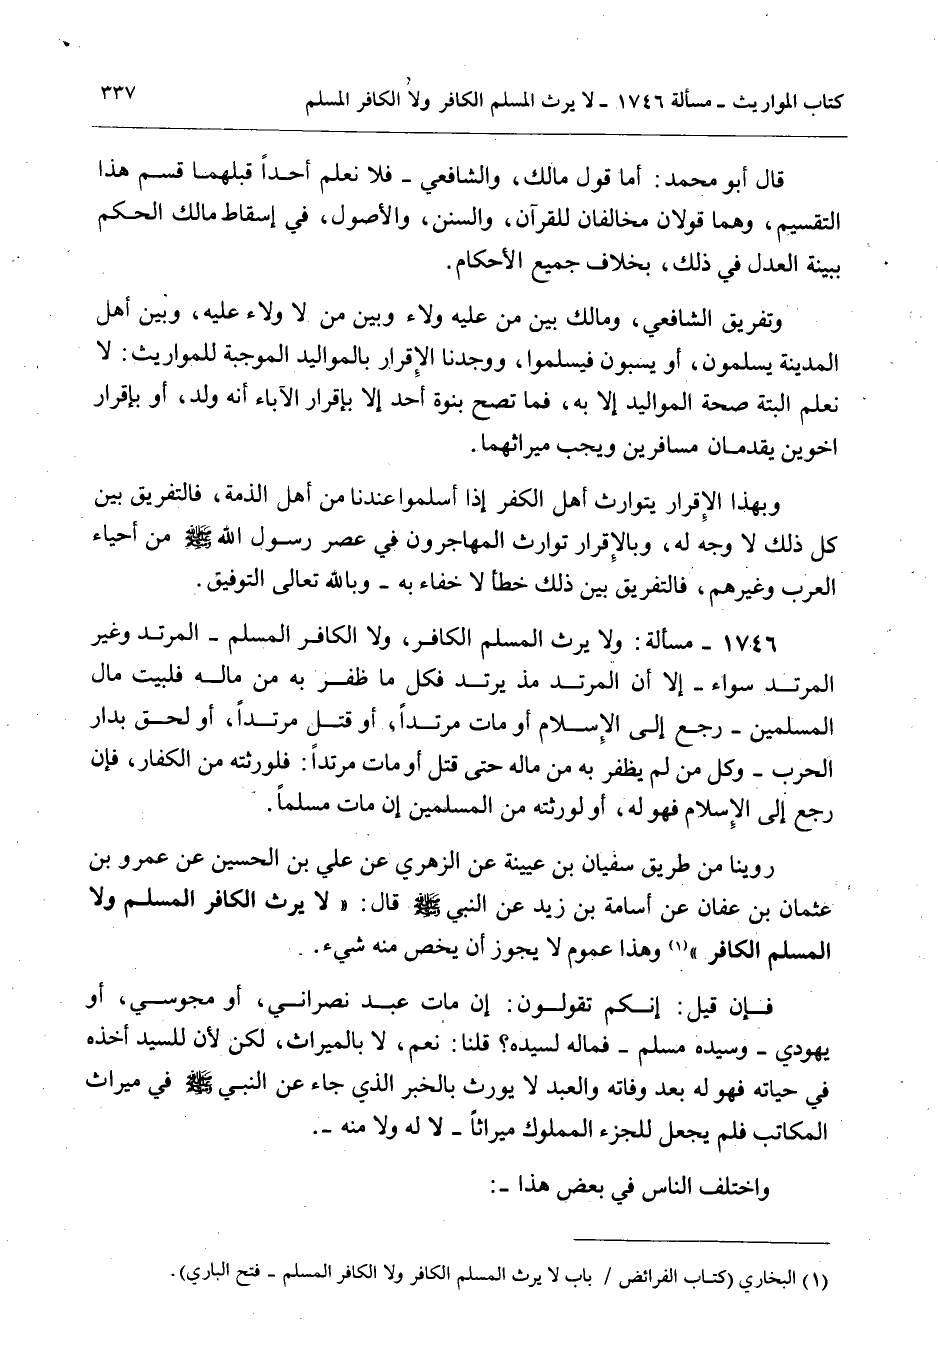 كتاب المواريث ـ مسألة ١٧٤٦ ـ لا يرث المسلم الكافر ولا الكافر المسلم ٣٣٧
قال أبو محمد: أما قول مالك، والشافعي ـ فلا نعلم أحداً قبلهما قسم هذا
التقسيم، وهما قولان مخالفان للقرآن، والسنن، والأصول، في إسقاط مالك الحكم
ببينة العدل في ذلك، بخلاف جميع الأحكام.
وتفريق الشافعي، ومالك بين من عليه ولاء وبين من لا ولاء عليه، وبين أهل
المدينة يسلمون، أو يسبون فيسلموا، ووجدنا الإقرار بالمواليد الموجبة للمواريث: لا
نعلم البتة صحة المواليد إلا به، فما تصح بنوة أحد إلا بإقرار الآباء أنه ولد، أو بإقرار
اخوين يقدمان مسافرين ويجب ميراثهما.
وبهذا الإقرار يتوارث أهل الكفر إذا أسلموا عندنا من أهل الذمة، فالتفريق بين
كل ذلك لا وجه له، وبالإقرار توارث المهاجرون في عصر رسول الله ﷺ من أحياء
العرب وغيرهم، فالتفريق بين ذلك خطأ لا خفاء به ـ وبالله تعالى التوفيق.
١٧٤٦ ـ مسألة: ولا يرث المسلم الكافر، ولا الكافر المسلم ـ المرتد وغير
المرتد سواء ـ إلا أن المرتد مذ يرتد فكل ما ظفر به من ماله فلبيت مال
المسلمين ـ رجع إلى الإسلام أو مات مرتداً، أو قتل مرتداً، أو لحق بدار
الحرب ـ وكل من لم يظفر به من ماله حتى قتل أو مات مرتداً: فلورثته من الكفار، فإن
رجع إلى الإسلام فهو له، أو لورثته من المسلمين إن مات مسلماً.
روينا من طريق سفيان بن عيينة عن الزهري عن علي بن الحسين عن عمرو بن
عثمان بن عفان عن أسامة بن زيد عن النبي ﷺ قال: « لا يرث الكافر المسلم ولا
المسلم الكافر »(١) وهذا عموم لا يجوز أن يخص منه شيء.
فإن قيل: إنكم تقولون: إن مات عبد نصراني، أو مجوسي، أو
يهودي ـ وسيده مسلم ـ فماله لسيده؟ قلنا: نعم، لا بالميراث، لكن لأن للسيد أخذه
في حياته فهو له بعد وفاته والعبد لا يورث بالخبر الذي جاء عن النبي ﷺ في ميراث
المكاتب فلم يجعل للجزء المملوك ميراثاً ـ لا له ولا منه ـ.
واختلف الناس في بعض هذا ـ:
(١) البخاري (كتاب الفرائض / باب لا يرث المسلم الكافر ولا الكافر المسلم ـ فتح الباري).